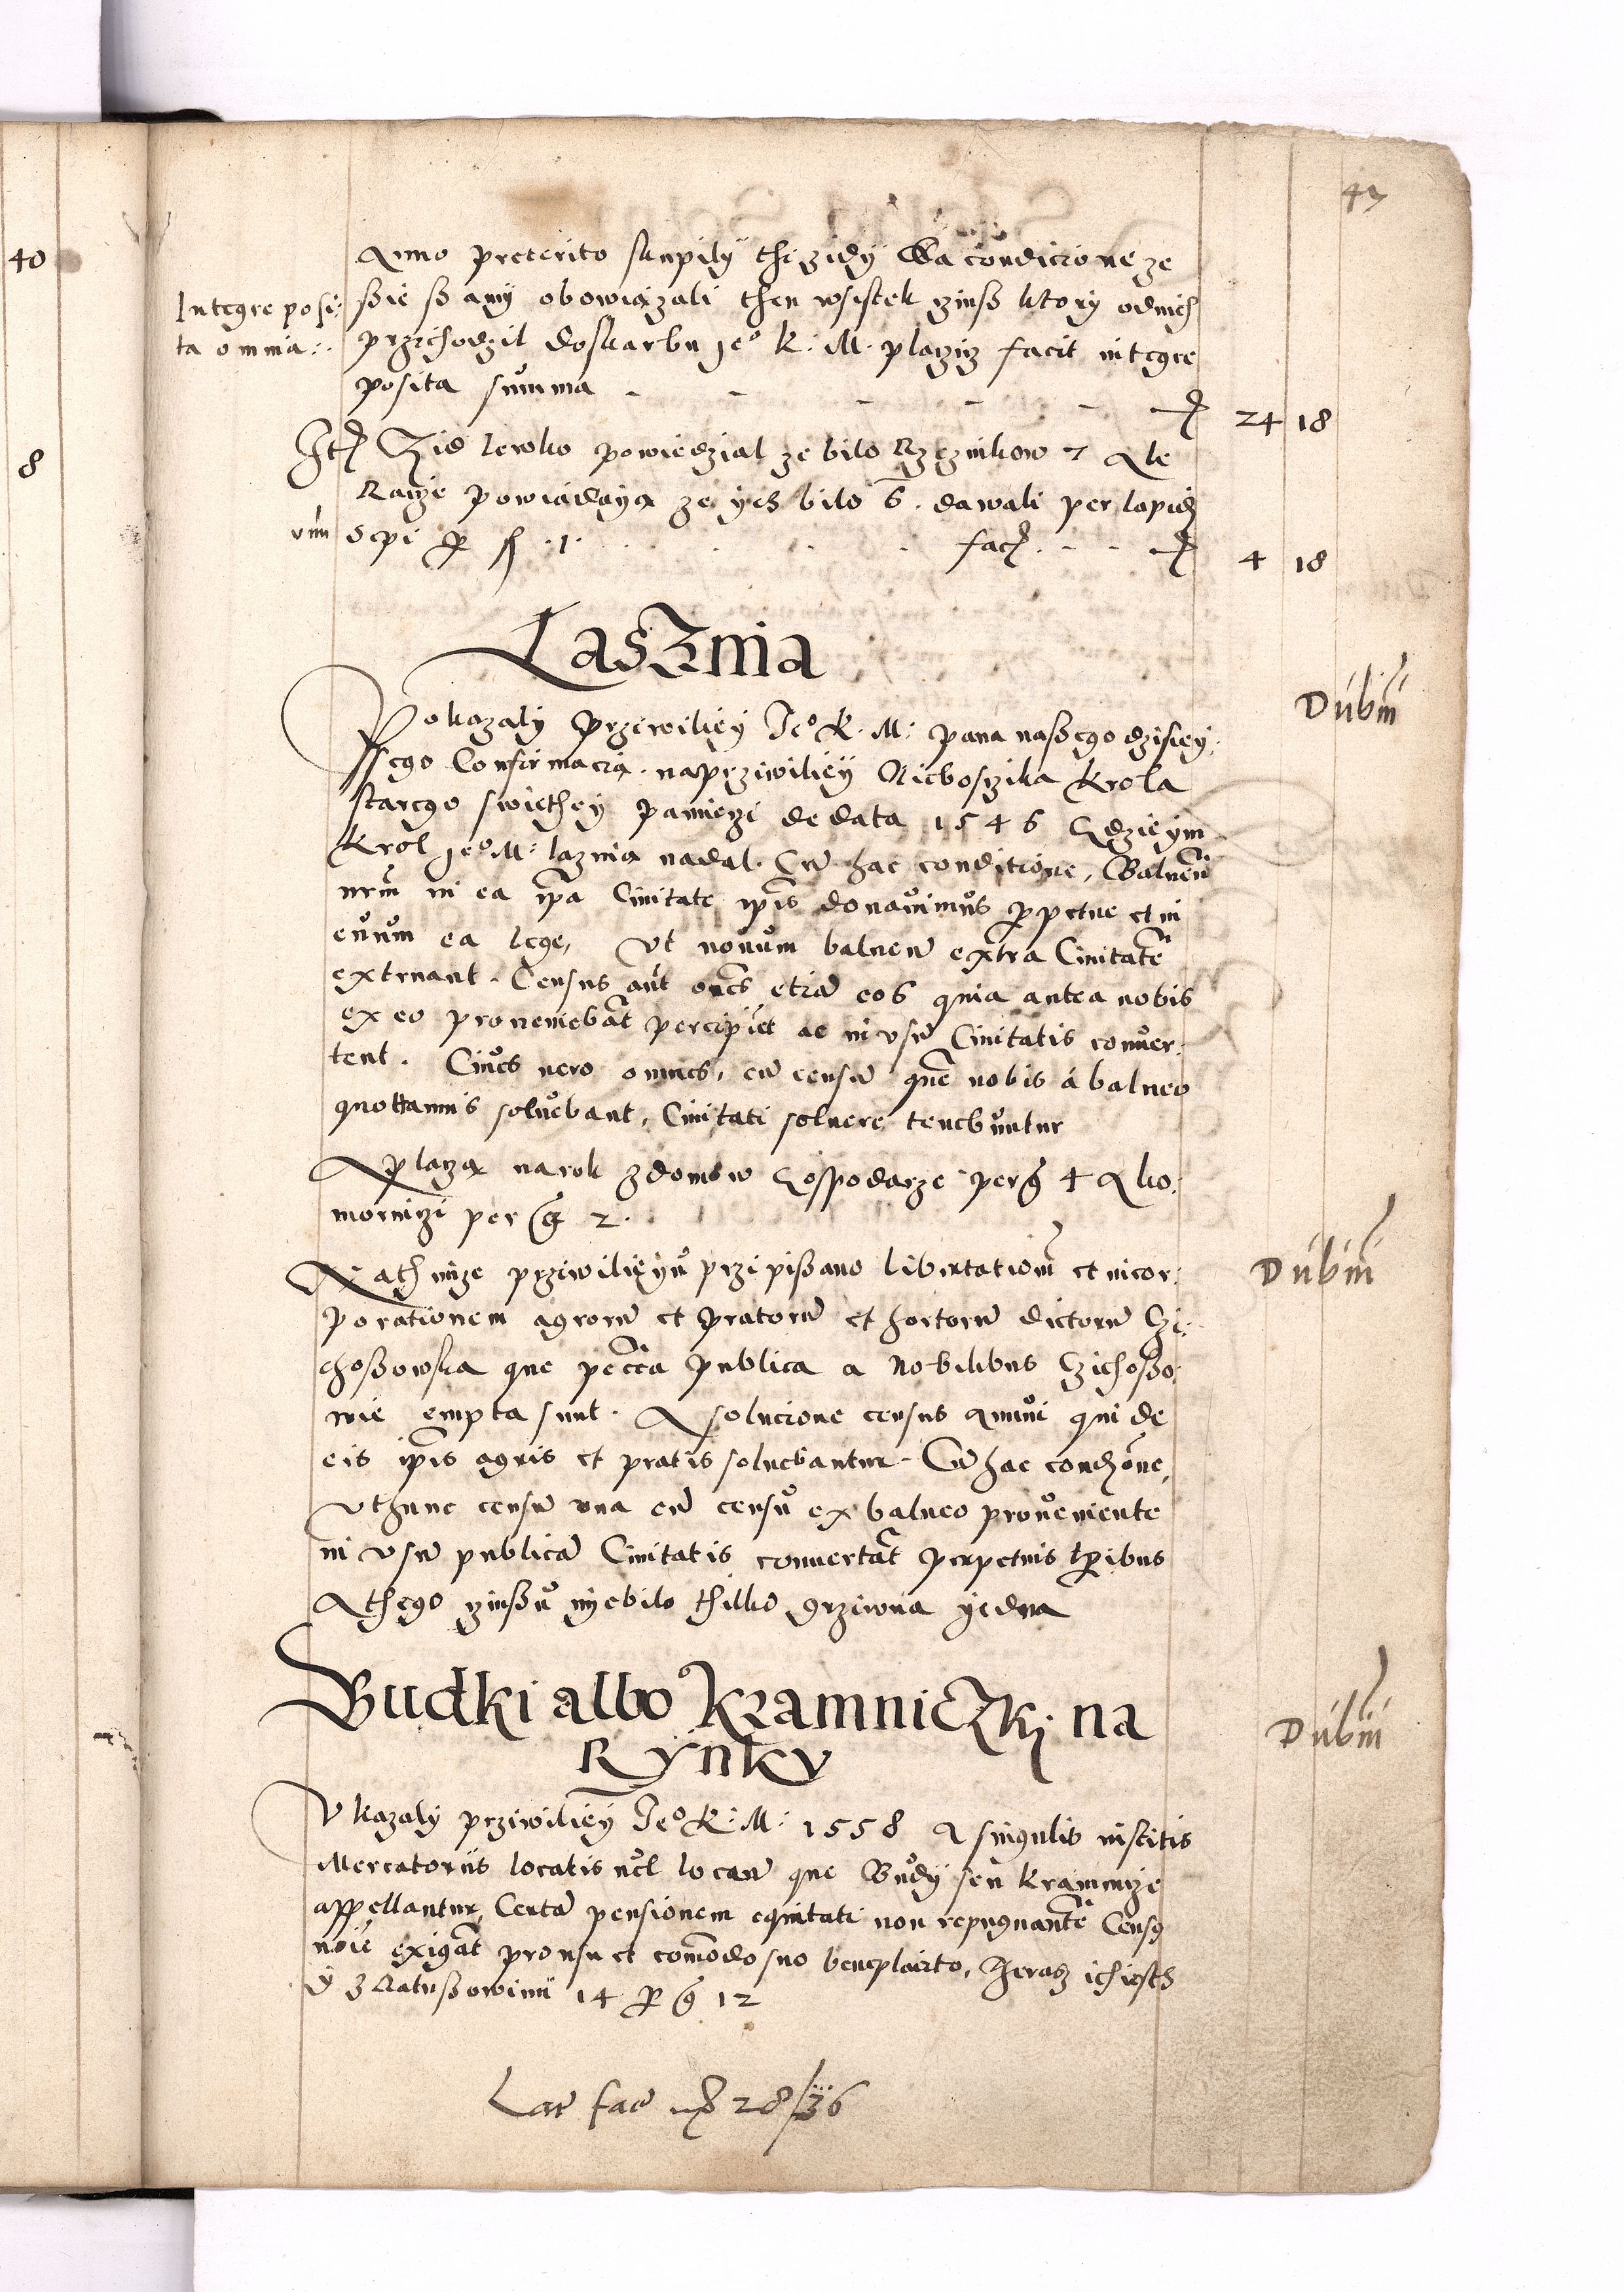 40
8
47
Anno preterito skupily thi zidy Ea condicione ze
Integre posi:
ta omnia:.
ssie ss amy obowiązali then wsistek czinss ktory od nich
przichodzil do skarbu Jeo K: M. placzicz facit integre
posita summa - - - - - fl 24 18
Itē Zid Lewko powiedzial ze bilo Rzeznikow 7 Ale
Raicze powiadaya ze ych bilo 6. dawali per lapidē
vnū sepi p fl .1. facit - - fl 4 18
Lasznia
Dubiū
Pokazaly Prziwiliey Jeo K. M: pana nassego dzisiey:
ssego Confirmacią na prziwiliey Nieboszika Krola
starego swiethey pamiczi de data 1546 Gdzie ym
Krol Jeo M: laznią nadal. Cū hac conditione, Balneū
nrm̄ in ea ipā Ciuitate ipīs donauimus ppetue et in
euum ea lege, Vt nouum balneū extra Ciuitatē
extruant. Census aut̄ oēs etiā eos quia antea nobis
ex eo proueniebāt percipiēt ac in vsū Ciuitatis conuer:
tent. Ciues uero omnes, eū censū quē nobis á balneo
quottannis soluebant, Ciuitati soluere tenebuntur
A placzą na rok z domow Gospodarze per g̃ 4 A ko:
mornizi per g̃ 2.
Dubiū
W tymze prziwilieyu przipissano libertationē et incor:
porationem agrorū et pratorū et hortorū dictorū Czi:
chossowska que pecc̄a publica a Nobilibus Czichosso:
wie empta sunt. A solucione census Annui qui de
eis ipīs agris et pratis soluebantur. Cū hac condicōne,
Vt hunc censū una cū censu ex balneo proueniente
in vsū publicū Ciuitatis conuertāt perpetuis tp̄ibus
A thego czinssu nyebilo thilko grziwna yedna
Budki albo Kramniczki na
Rynku
Dubiū
Vkazaly prziwiliey Jeo K: M: 1558 A singulis institis
Mercatoriis locatis uel locan̄ que Budy seu Kramnicze
appellantur, Certā pensionem equitati non repugnantē Censꝯ
noīe exigāt pro usu et comodo suo beneplacito, Teraz ich iesth
y z Ratussowimi 14 p g̃ 12
Lat̄ fac̄ fl 28/36